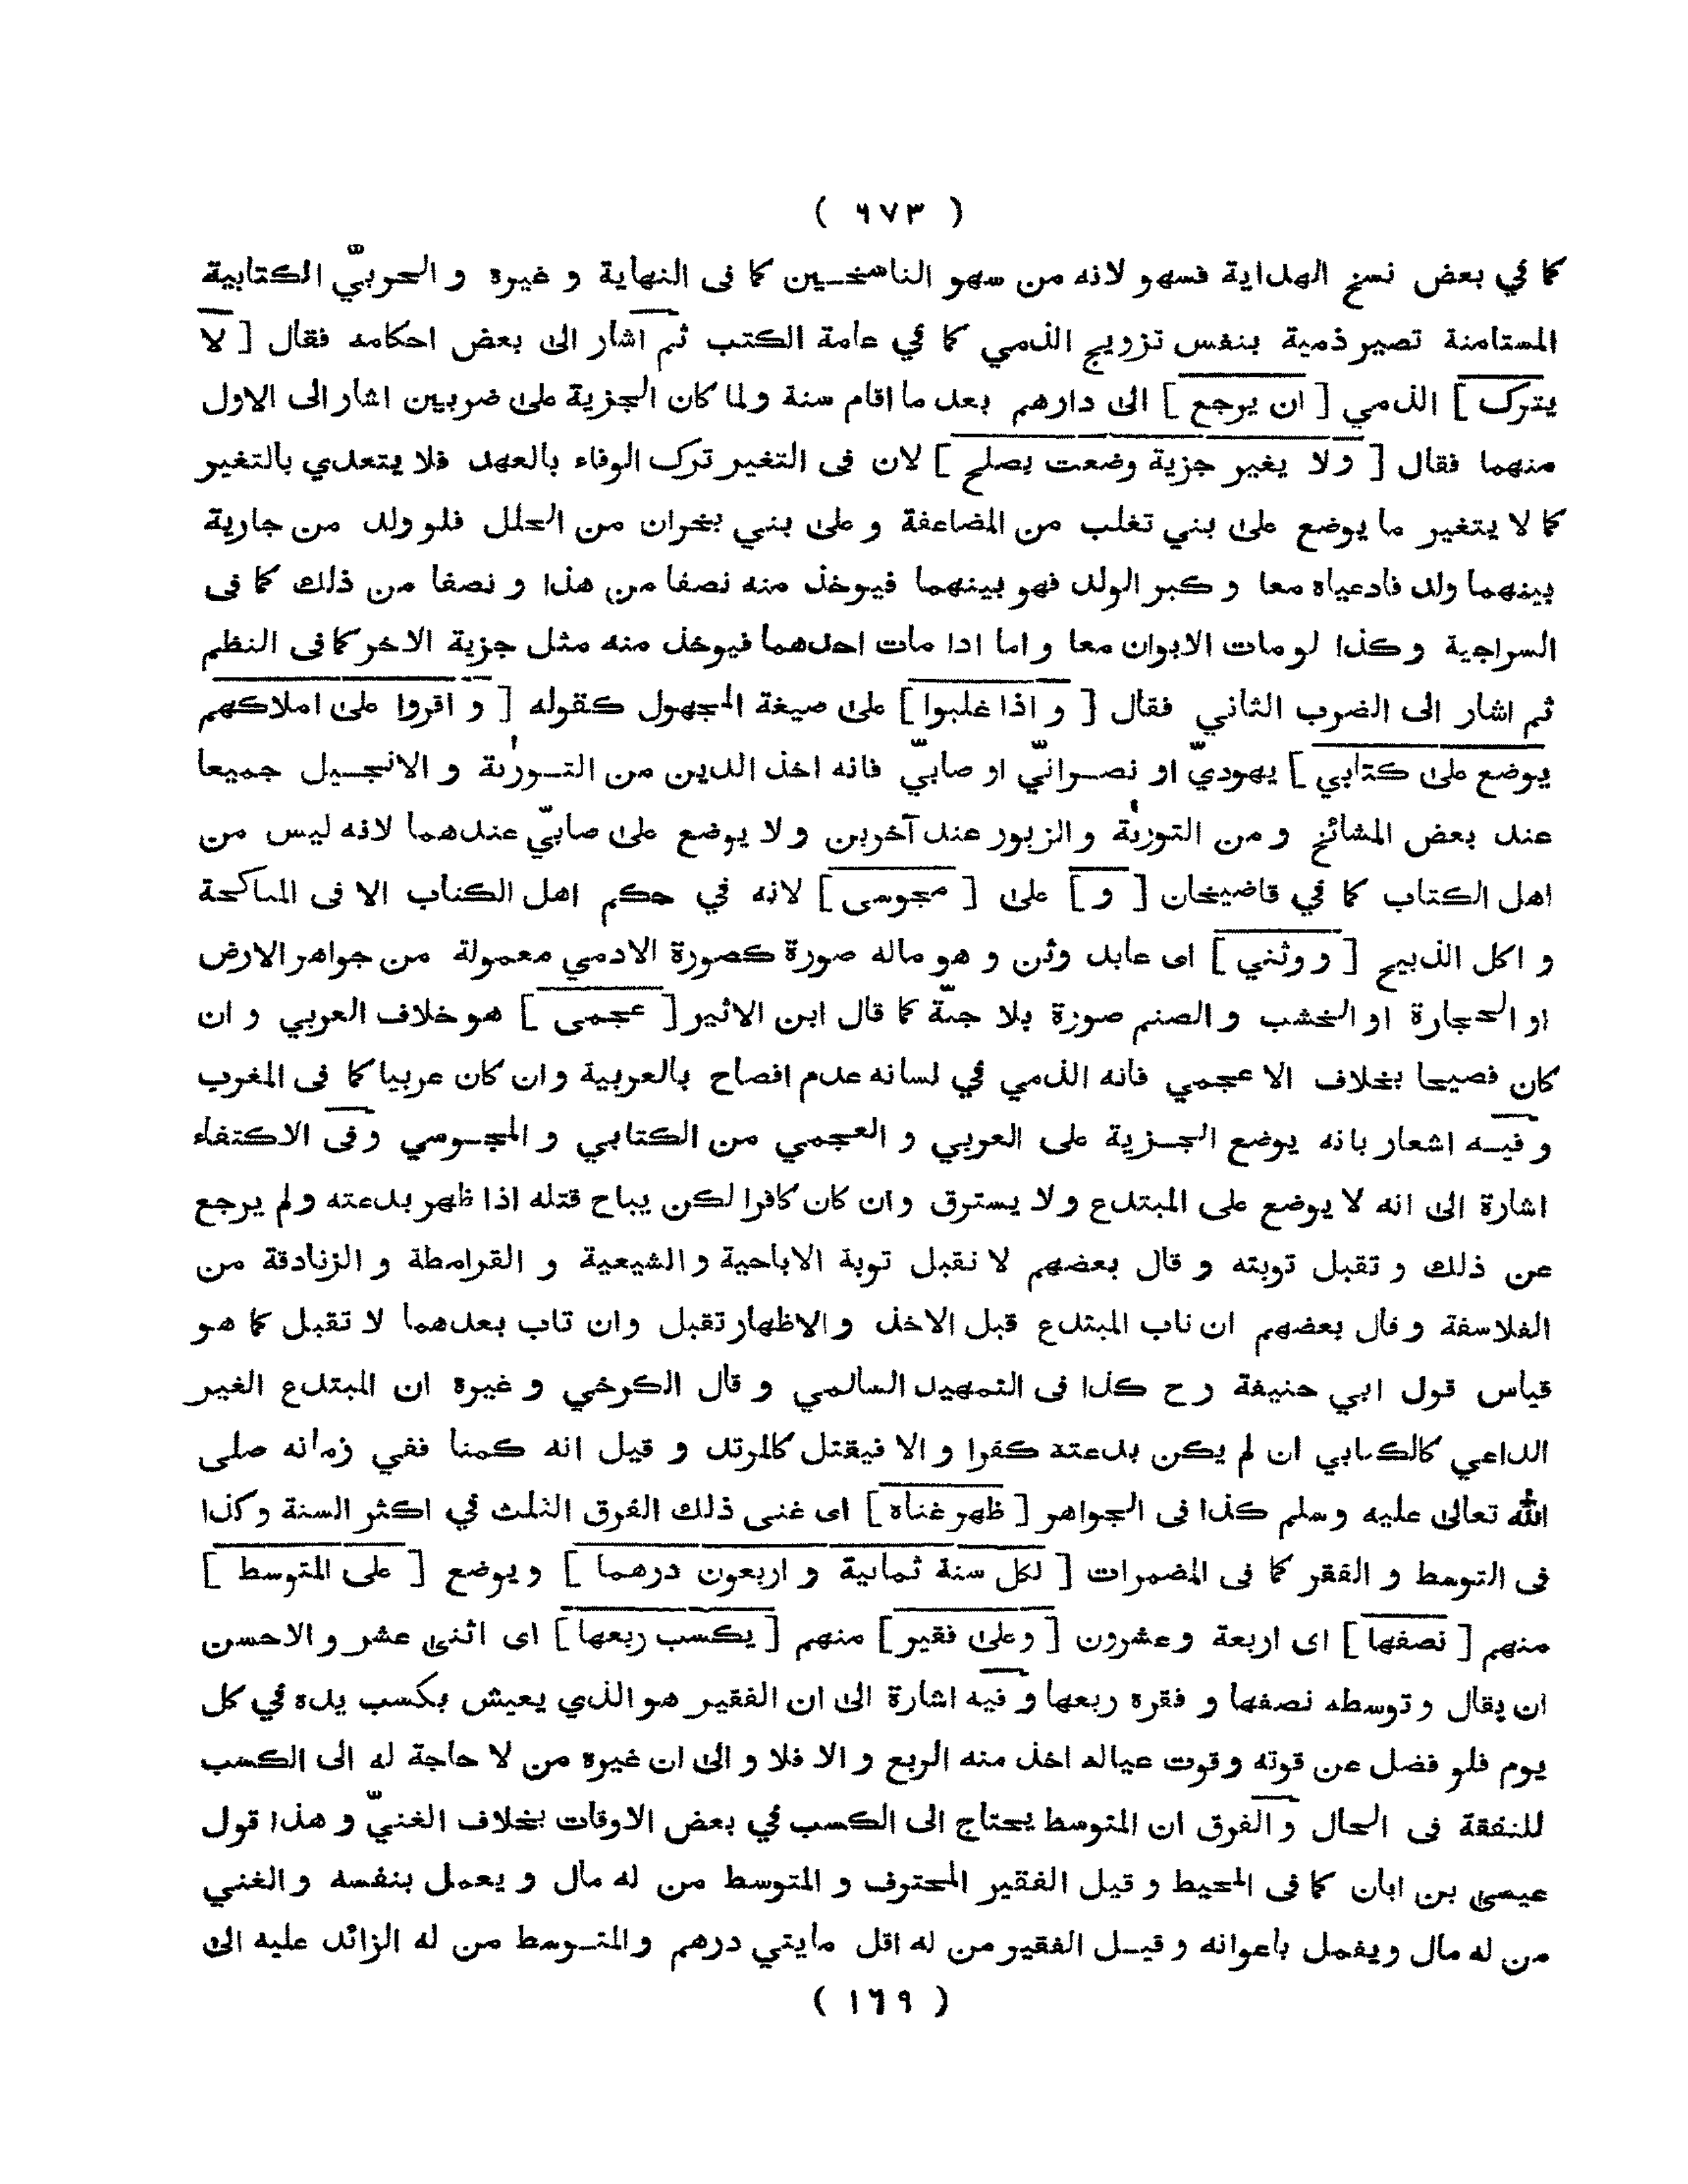 ( ٦٧٣ )
كما في بعض نسخ الهداية فسهو لانه من سهو الناسخين كما فى النهاية و غيره و الحربيّ الكتابية
المستامنة تصير ذمية بنفس تزويج الذمي كما في عامة الكتب ثم اشار الى بعض احكامه فقال [ لا
يترك ] الذمي [ ان يرجع ] الى دارهم بعد ما اقام سنة ولما كان الجزية على ضربين اشار الى الاول
منهما فقال [ ولا يغير جزية وضعت بصلح ] لان فى التغير ترك الوفاء بالعهد فلا يتعدي بالتغير
كما لا يتغير ما يوضع على بني تغلب من المضاعفة و على بني نجران من الحلل فلو ولد من جارية
بينهما ولد فادعياه معا و كبر الولد فهو بينهما فيوخذ منه نصفا من هذا و نصفا من ذلك كما فى
السراجية و كذا لو مات الابوان معا و اما اذا مات احدهما فيوخذ منه مثل جزية الاخر كما فى النظم
ثم اشار الى الضرب الثاني فقال [ و اذا غلبوا ] على صيغة المجهول كقوله [ و اقروا على املاكهم
يوضع على كتابي ] يهوديّ او نصرانيّ او صابيّ فانه اخذ الدين من التورٰىة و الانجيل جميعا
عند بعض المشائخ و من التورٰىة و الزبور عند آخرين و لا يوضع على صابيّ عندهما لانه ليس من
اهل الكتاب كما في قاضيخان [ و ] على [ مجوسى ] لانه في حكم اهل الكتاب الا فى المناكحة
و اكل الذبيح [ و وثني ] اى عابد وثن و هو ماله صورة كصورة الادمي معمولة من جواهر الارض
او الحجارة او الخشب و الصنم صورة بلا جثّة كما قال ابن الاثير [ عجمى ] هو خلاف العربي و ان
كان فصيحا بخلاف الاعجمي فانه الذمي في لسانه عدم افصاح بالعربية و ان كان عربيا كما فى المغرب
و فيه اشعار بانه يوضع الجزية على العربي و العجمي من الكتابي و المجوسي و فى الاكتفاء
اشارة الى انه لا يوضع على المبتدع و لا يسترق و ان كان كافرا لكن يباح قتله اذا ظهر بدعته ولم يرجع
عن ذلك و تقبل توبته و قال بعضهم لا تقبل توبة الاباحية و الشيعية و القرامطة و الزنادقة من
الفلاسفة و قال بعضهم ان تاب المبتدع قبل الاخذ و الاظهار تقبل وان تاب بعدهما لا تقبل كما هو
قياس قول ابي حنيفة رح كذا فى التمهيد السالمي و قال الكرخي و غيره ان المبتدع الغير
الداعي كالكتابي ان لم يكن بدعته كفرا و الا فيقتل كالمرتد و قيل انه كمنا ففي زمانه صلى
الله تعالى عليه و سلم كذا فى الجواهر [ ظهر غناه ] اى غنى ذلك الفرق الثلث في اكثر السنة و كذا
فى التوسط و الفقر كما فى المضمرات [ لكل سنة ثمانية و اربعون درهما ] و يوضع [ على المتوسط ]
منهم [ نصفها ] اى اربعة و عشرون [ وعلى فقير ] منهم [ يكسب ربعها ] اى اثنى عشر و الاحسن
ان يقال و توسطه نصفها و فقره ربعها و فيه اشارة الى ان الفقير هو الذي يعيش بكسب يده في كل
يوم فلو فضل عن قوته و قوت عياله اخذ منه الربع و الا فلا و الى ان غيره من لا حاجة له الى الكسب
للنفقة فى الحال و الفرق ان المتوسط يحتاج الى الكسب في بعض الاوقات بخلاف الغنيّ و هذا قول
عيسى بن ابان كما فى المحيط و قيل الفقير المحترف و المتوسط من له مال و يعمل بنفسه و الغني
من له مال و يفمل باعوانه و قيل الفقير من له اقل مايتي درهم و المتوسط من له الزائد عليه الى
( ١٦٩ )